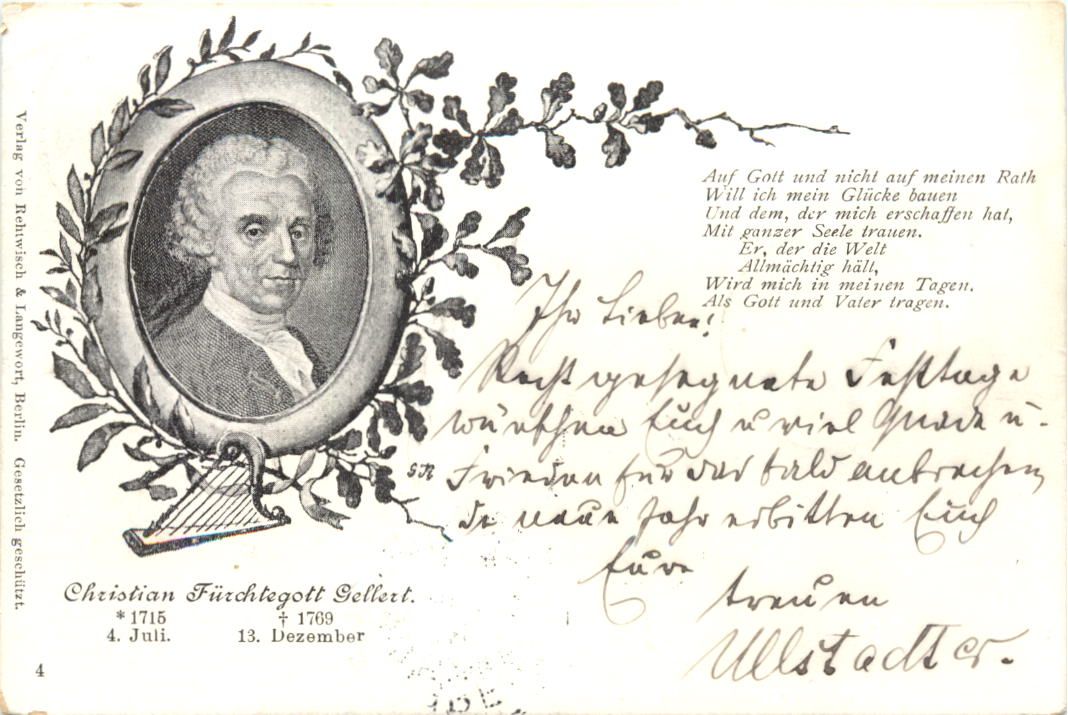 Verlag von Rehtwisch & Langewort, Berlin. Gesetzlich geschützt.
Auf Gott und nicht auf meinen Rath
Will ich mein Glücke bauen
Und dem, der mich erschaffen hat,
Mit ganzer Seele trauen.
Er, der die Welt
Allmächtig hält,
Wird mich in meinen Tagen.
Als Gott und Vater tragen.
Ihr Lieben!
Recht gesegnete Festtage
wünschen Euch u viel Gnade u.
Frieden für das bald anbrechen
de neue Jahr erbitten Euch
Eure
treuen
Ullstadter.
SR
Christian Fürchtegott Gellert.
* 1715 † 1769
4. Juli. 13. Dezember
4